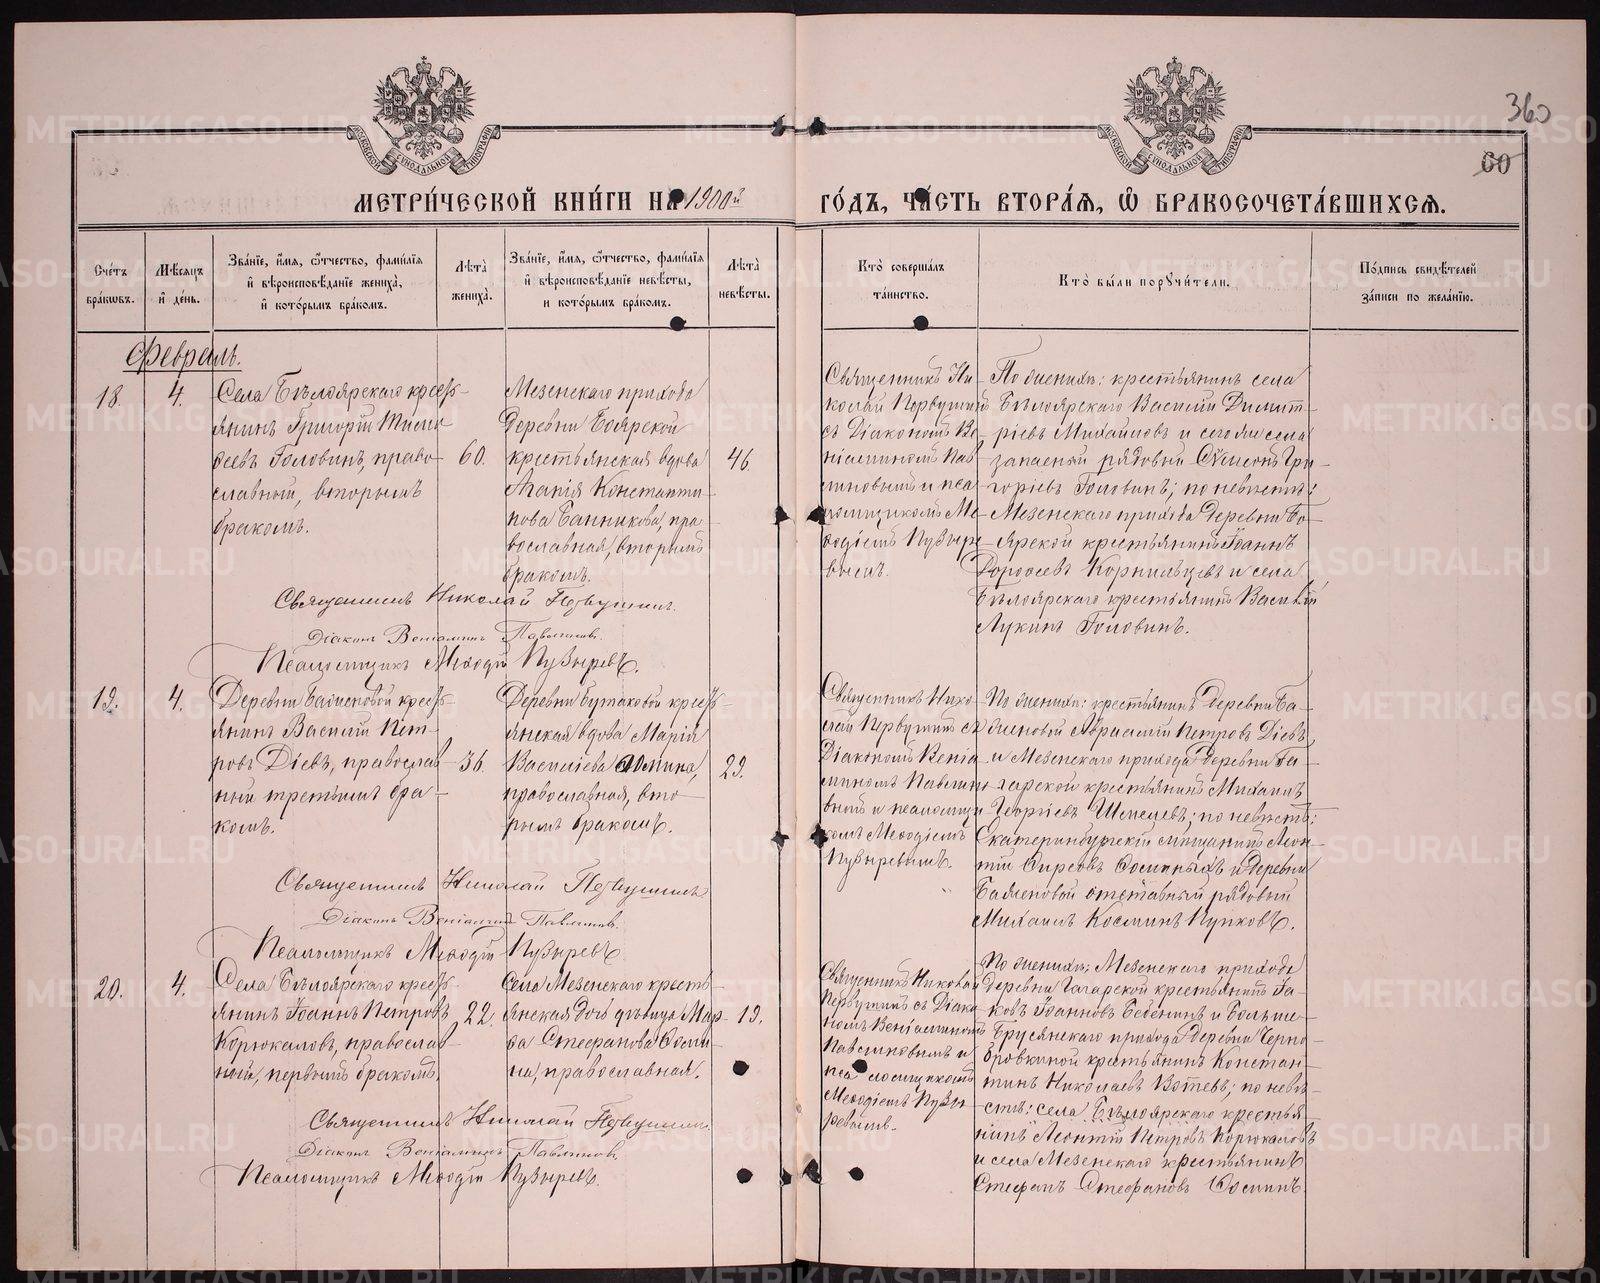 360
60
МОСКОВСКОЙ СѴНОДАЛЬНОЙ ТИПОГРАФІИ
МОСКОВСКОЙ СѴНОДАЛЬНОЙ ТИПОГРАФІИ
МЕТРИ́ЧЕСКОЙ КНИ́ГИ НА 1900й ГО́ДЪ, ЧА́СТЬ ВТОРА́Ѧ, Ѽ БРАКОСОЧЕТА́ВШИХСѦ.
Сче́тъ бра́кωвъ.
Мѣ́сяцъ и҆ де́нь.
Зва́нїе, и҆́мя, ѻ҆́тчество, фами́лїя и҆ вѣроисповѣ́данїе жениха̀, и҆ кото́рымъ бра́комъ.
Лѣ́та жениха̀.
Зва́нїе, и҆́мя, ѻ҆́тчество, фами́лїя и҆ вѣроисповѣ́данїе невѣ́сты, и҆ кото́рымъ бра́комъ.
Лѣ́та невѣ́сты.
Кто̀ соверша́лъ та́инство.
Кто̀ бы́ли порꙋчи́тели.
По́дпись свидѣ́телей за́писи по жела́нїю.
Февраль.
18.
4.
Села Бѣлоярскаго кресть-
янинъ Григорій Тимо-
ѳеевъ Головинъ, право-
славный, вторымъ
бракомъ.
60.
Мезенскаго прихода
Деревни Боярской
крестьянская вдова
Агапія Константи-
нова Банникова, пра-
вославная, вторымъ
бракомъ.
46.
Священникъ Ни-
колай Первушинъ
съ Діакономъ Ве-
ніаминомъ Пав-
линовымъ и пса-
ломщикомъ Ме-
ѳодіемъ Пузыре-
вымъ.
По женихѣ: крестьянинъ села
Бѣлоярскаго Василій Димит-
ріевъ Михайловъ и того же села
запасный рядовый Сѵмеонъ Гри-
горіевъ Головинъ; по невѣстѣ:
Мезенскаго прихода Деревни Бо-
ярской крестьянинъ Іоаннъ
Дороѳеевъ Корнильцевъ и села
Бѣлоярскаго крестьянинъ Василій
Лукинъ Головинъ.
Священникъ Николай Первушинъ.
Діаконъ Веніаминъ Павлиновъ.
Псаломщикъ Меѳодій Пузыревъ.
19.
4.
Деревни Баженовой кресть-
янинъ Василій Пет-
ровъ Діевъ, православ-
ный третьимъ бра-
комъ.
36.
Деревни Бутаковой кресть-
янская вдова Марія
Василіева Ѳомина,
православная, вто-
рымъ бракомъ.
29.
Священникъ Нико-
лай Первушинъ съ
Діакономъ Веніа-
миномъ Павлино-
вымъ и псаломщи-
комъ Меѳодіемъ
Пузыревымъ.
По женихѣ: крестьянинъ Деревни Ба-
женовой Авраамій Петровъ Діевъ
и Мезенскаго прихода Деревни Га-
гарской крестьянинъ Михаилъ
Георгіевъ Шмелевъ; по невѣстѣ:
Екатеринбургскій мѣщанинъ Леон-
тій Ѳирсовъ и Деревни
Баженовой отставный рядовый
Михаилъ Косминъ Пупковъ.
Священникъ Николай Первушинъ.
Діаконъ Веніаминъ Павлиновъ.
Псаломщикъ Меѳодій Пузыревъ
20.
4.
Села Бѣлоярскаго кресть-
янинъ Іоаннъ Петровъ
Корюкаловъ, православ-
ный, первымъ бракомъ.
22.
Села Мезенскаго кресть-
янская дочь дѣвица Мар-
ѳа Стефанова Ѳоми-
на, православная.
19.
Священникъ Николай
Первушинъ съ Діако-
номъ Веніаминомъ
Павлиновымъ и
псаломщикомъ
Меѳодіемъ Пузы-
ревымъ.
По женихѣ: Мезенскаго прихода
Деревни Гагарской крестьянинъ Іа-
ковъ Іоанновъ Бабенинъ и Больше-
Брусянскаго прихода Деревни Черно-
бровкиной крестьянинъ Констан-
тинъ Николаевъ Вотевъ; по невѣ-
стѣ: села Бѣлоярскаго крестья-
нинъ Леонтій Петровъ Корюкаловъ
и села Мезенскаго крестьянинъ
Стефанъ Стефановъ Ѳоминъ.
Священникъ Николай Первушинъ.
Діаконъ Веніаминъ Павлиновъ.
Псаломщикъ Меѳодій Пузыревъ.
METRIKI.GASO-URAL.RU